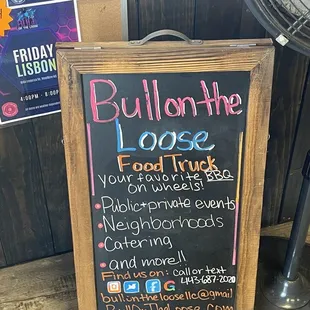 FRIDAY
LISBON
Bull on the
Loose
Food Truck
your favorite BBQ
on wheels!
• Public + private events
• Neighborhoods
• Catering
and more!!
Find us on: call or text
443-687-2020
bullontheloosellc@gmail
BullOnTheLoose.com